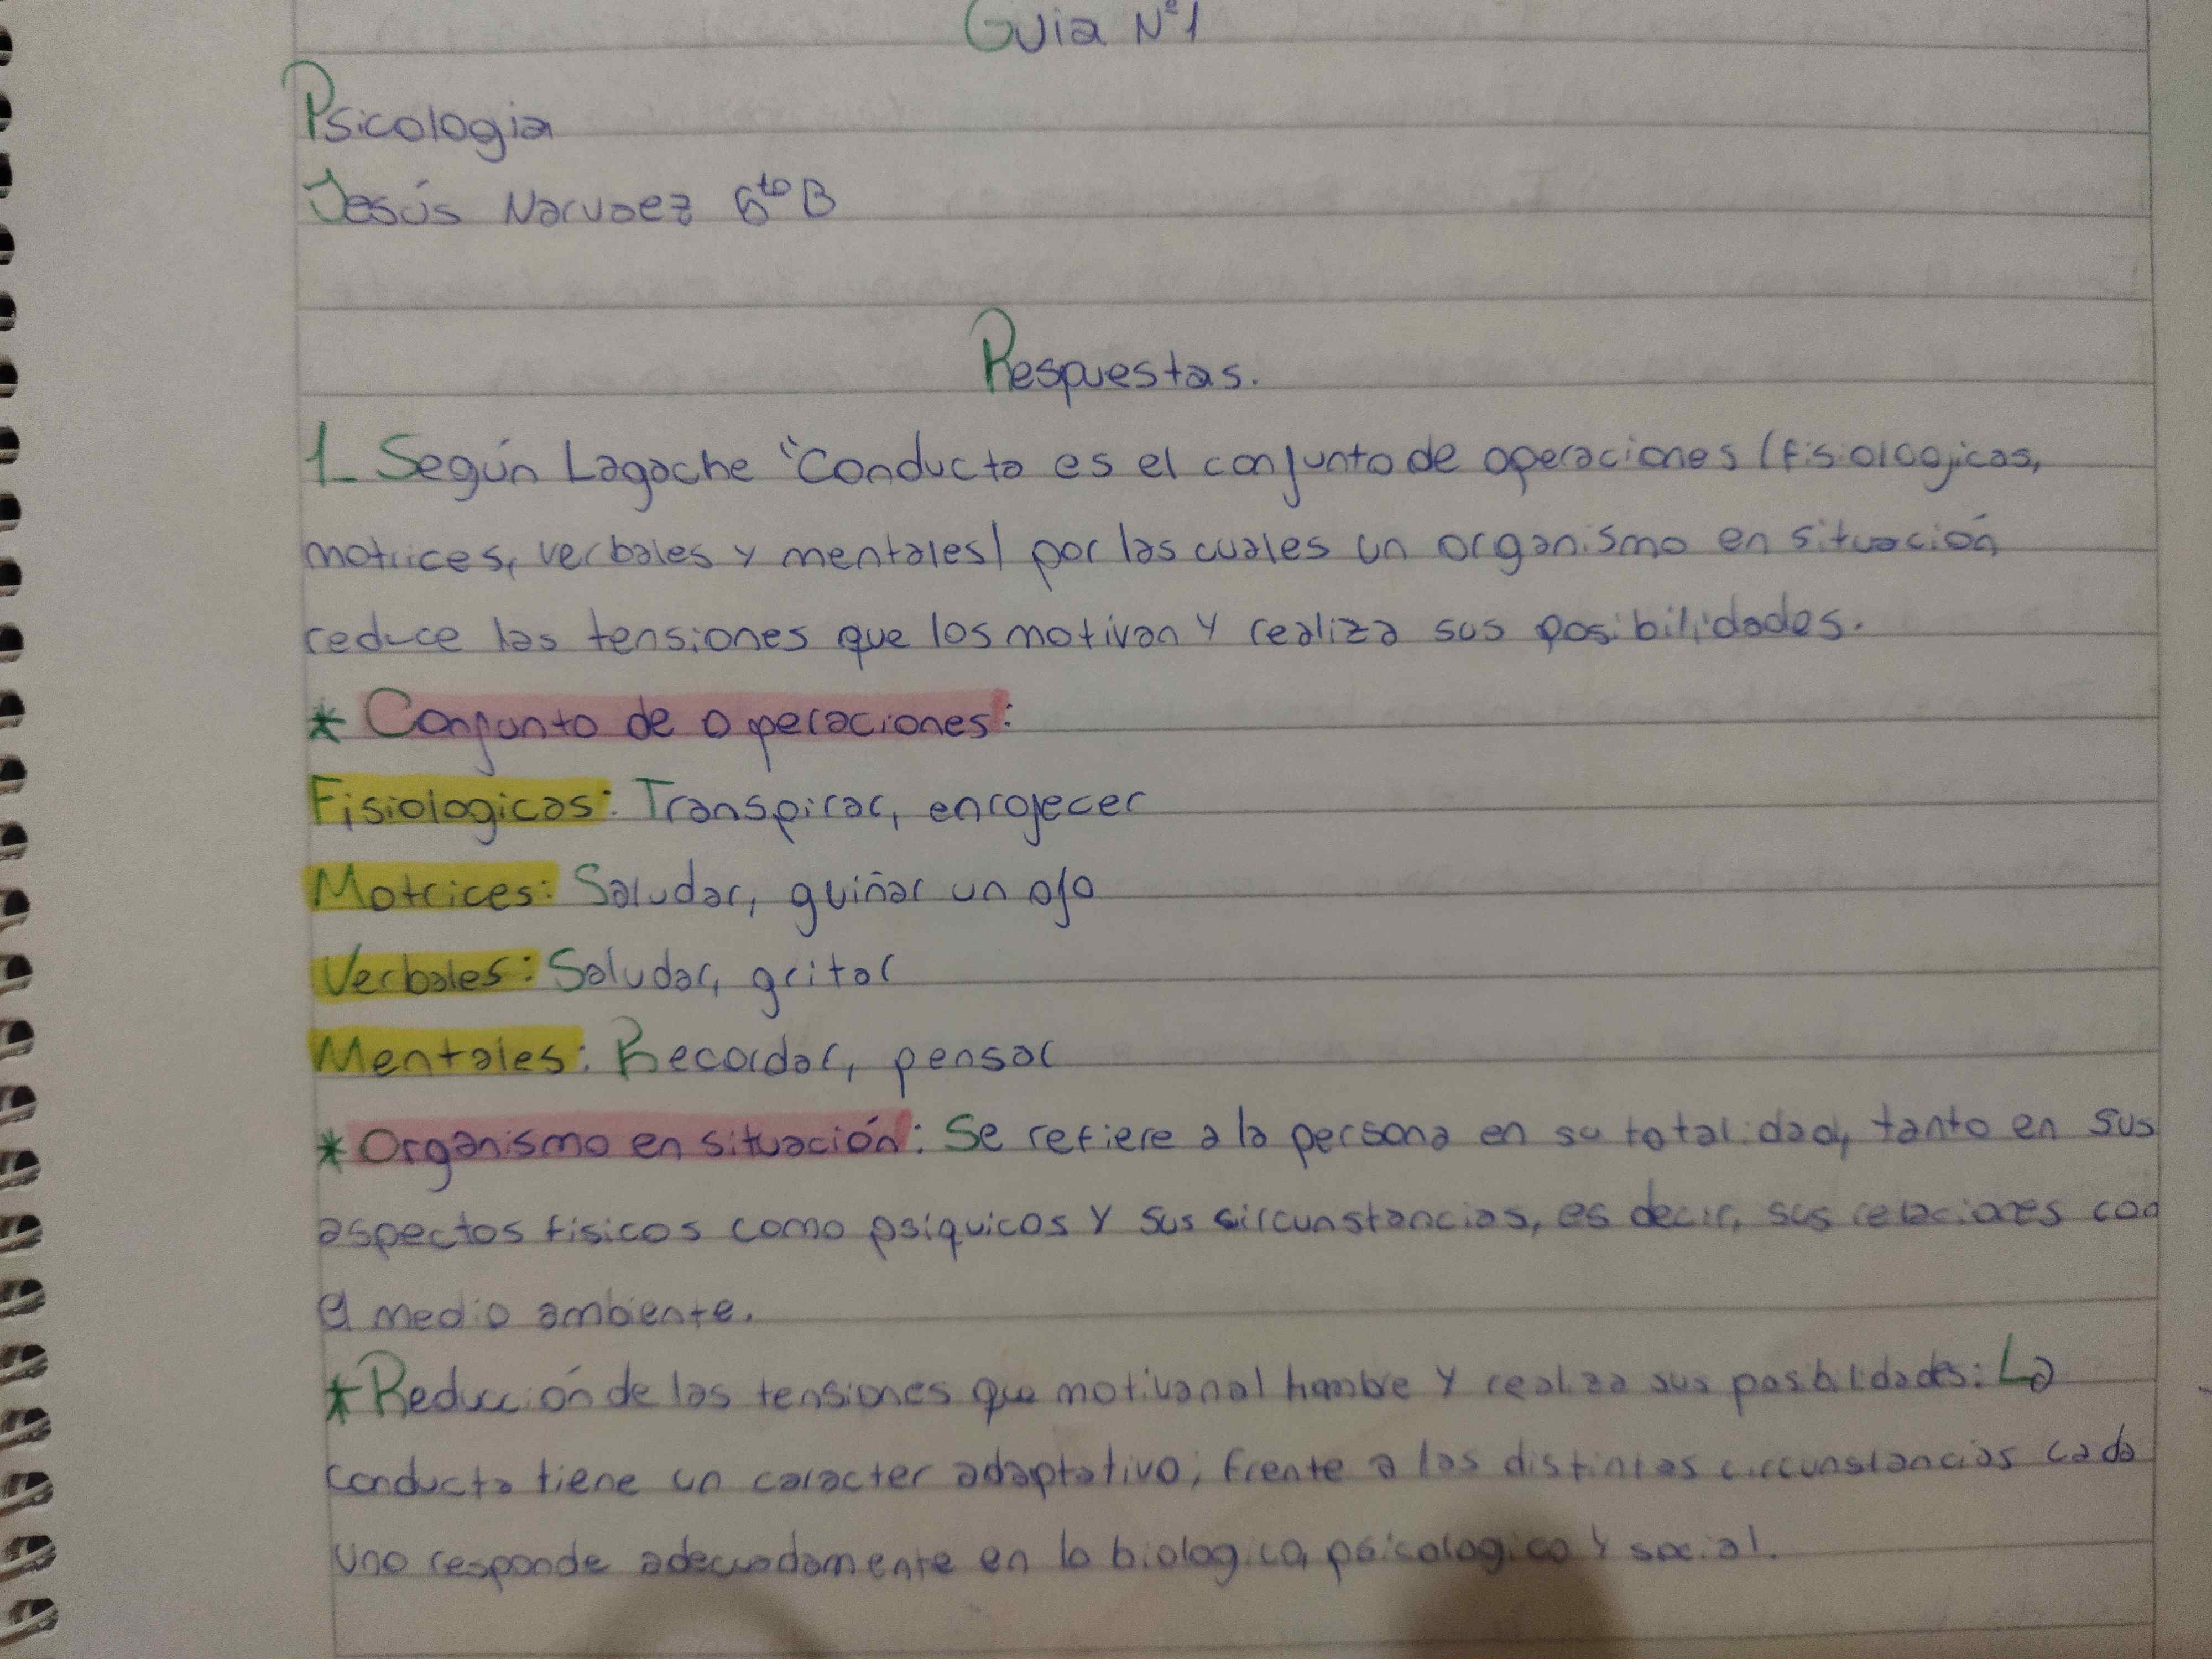 Guia N°1
Psicologia
Jesús Narvaez 6to B
Respuestas.
1_ Según Lagache "Conducta es el conjunto de operaciones (fisiologicas,
motrices, verbales y mentales) por las cuales un organismo en situación
reduce las tensiones que los motivan y realiza sus posibilidades.
* Conjunto de operaciones:
Fisiologicas: Transpirar, enrojecer
Motrices: Saludar, guiñar un ojo
Verbales: Saludar, gritar
Mentales: Recordar, pensar
* Organismo en situación: Se refiere a la persona en su totalidad, tanto en sus
aspectos fisicos como psíquicos y sus circunstancias, es decir, sus relaciones con
el medio ambiente.
* Reducción de las tensiones que motivan al hombre y realiza sus posibilidades: La
conducta tiene un caracter adaptativo; frente a las distintas circunstancias cada
uno responde adecuadamente en lo biologico, psicologico y social.